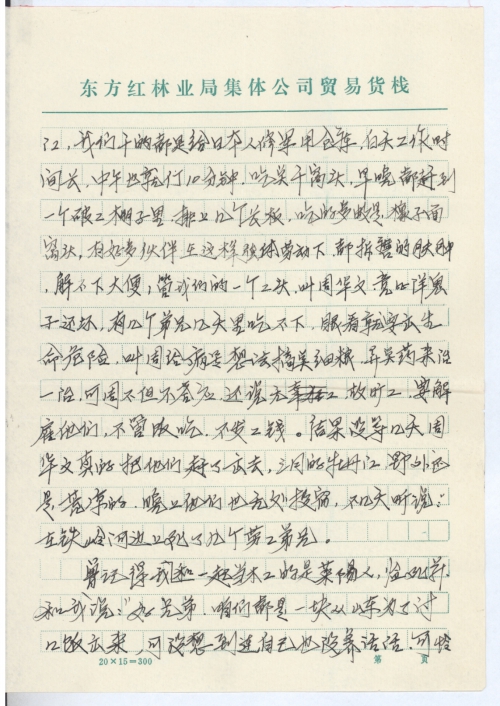 东方红林业局集体公司贸易货栈
江，我们干的都是给日本人修军用仓库，白天工作时
间长，中午也就付10分钟，吃点干窝头，早晚都到
一个破工棚子里，排上几个长板，吃的多数是橡子面
窝头，有好多伙伴在这样劳动下，都折磨的
，解不下大便，管我们的一个工头，叫周华文，竟比洋鬼
子还坏，有几个弟兄几天里吃不下，眼看就要出生
命危险，叫周给病号想法搞点细粮，弄点药来治
一治，可周不但不答应，还说无工，故旷工，要解
雇他们，不管饭吃，不发工钱。结果没等几天周
华文真的把他们赶了出去，三月的牡丹江，野外还
是荒凉的，晚上他们也无处投宿，不几天听说：
在铁岭河边上死了几个劳工弟兄。
曾记得我和一起当木工的是莱阳人，临死前
和我说：“好兄弟，咱们都是一块从山东为了讨
口饭出来，可没想到连自己也没养活活，可怜
20×15=300 第 页